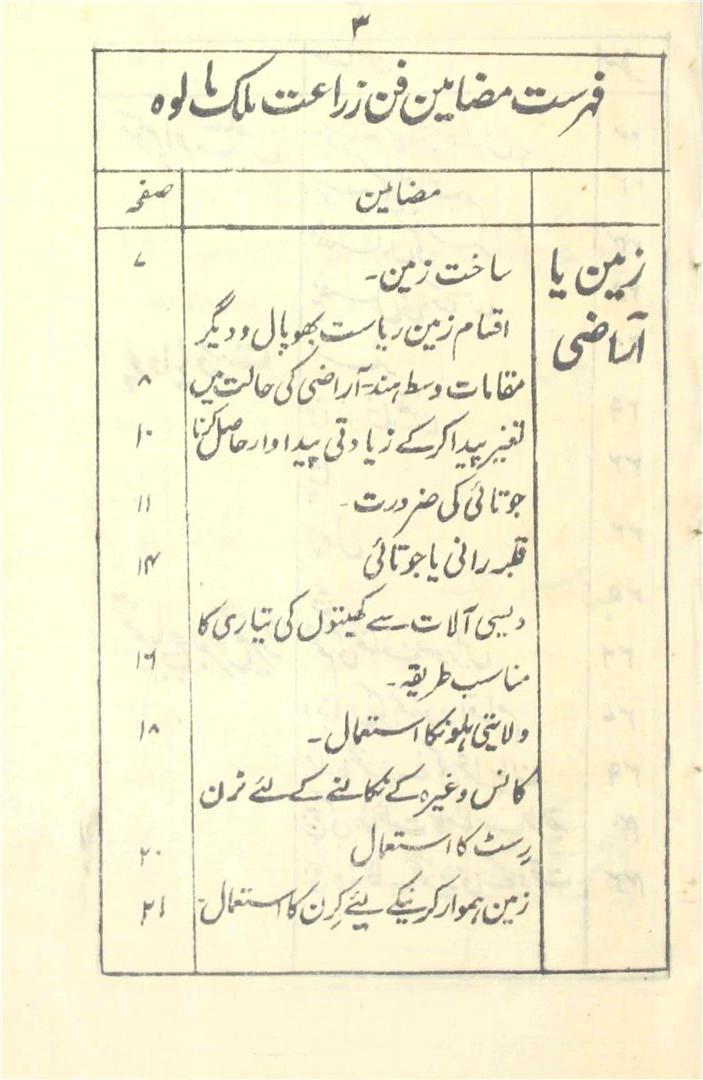 ۳
فہرست مضامین فن زراعت ملک مالوہ
مضامین صفحہ
زمین یا
آراضی
ساخت زمین۔ ۷
اقسام زمین ریاست بھوپال و دیگر
مقامات وسط ہند۔ آراضی کی حالت میں ۸
تغیر پیدا کر کے زیادتی پیداوار حاصل کرنا ۱۰
جوتائی کی ضرورت۔ ۱۱
قلبہ رانی یا جوتائی ۱۴
دیسی آلات سے کھیتوں کی تیاری کا
مناسب طریقہ۔ ۱۶
ولایتی ہلونکا استعمال۔ ۱۸
کانس وغیرہ کے نکالنے کے لئے ٹرن
رسٹ کا استعمال ۲۰
زمین ہموار کرنیکے لیئے کرن کا استعمال۔ ۲۱